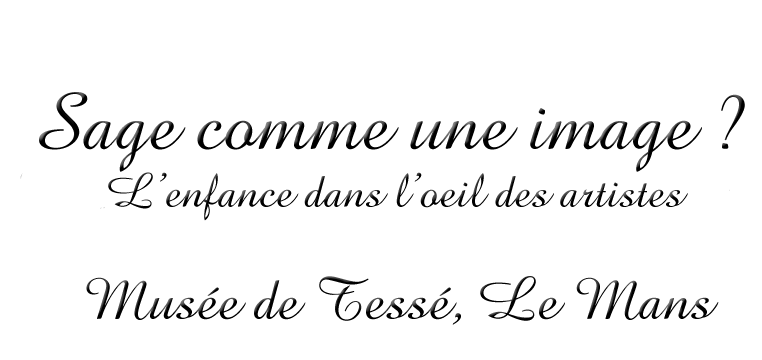 Sage comme une image ?
L'enfance dans l'oeil des artistes
Musée de Tessé, Le Mans